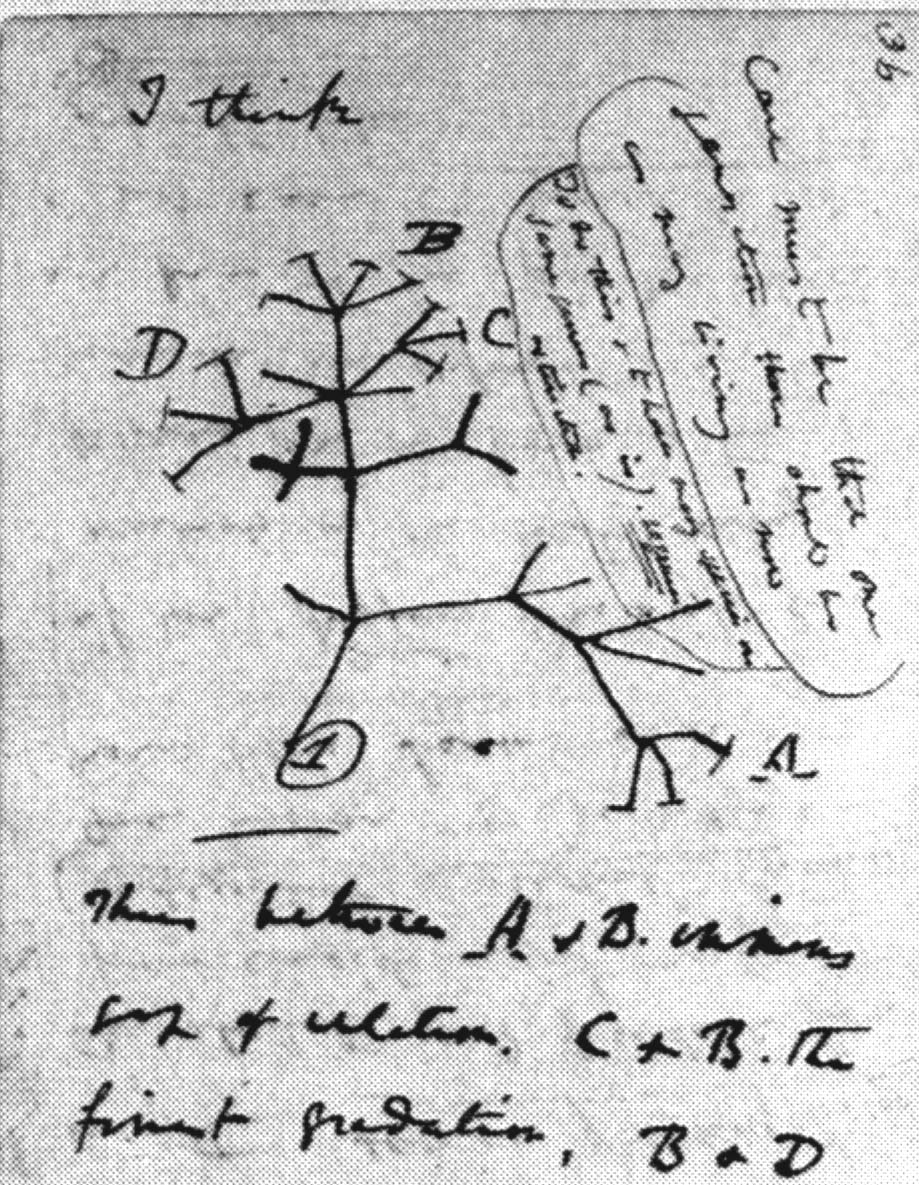 I think
36
Case must be that one
generation then should be
as many living as now
To do this & to have many species in
same genus (as is). requires
extinction.
B
D
C
A
1
Thus between A & B. immens
gap of relation. C & B. The
finest gradation, B & D